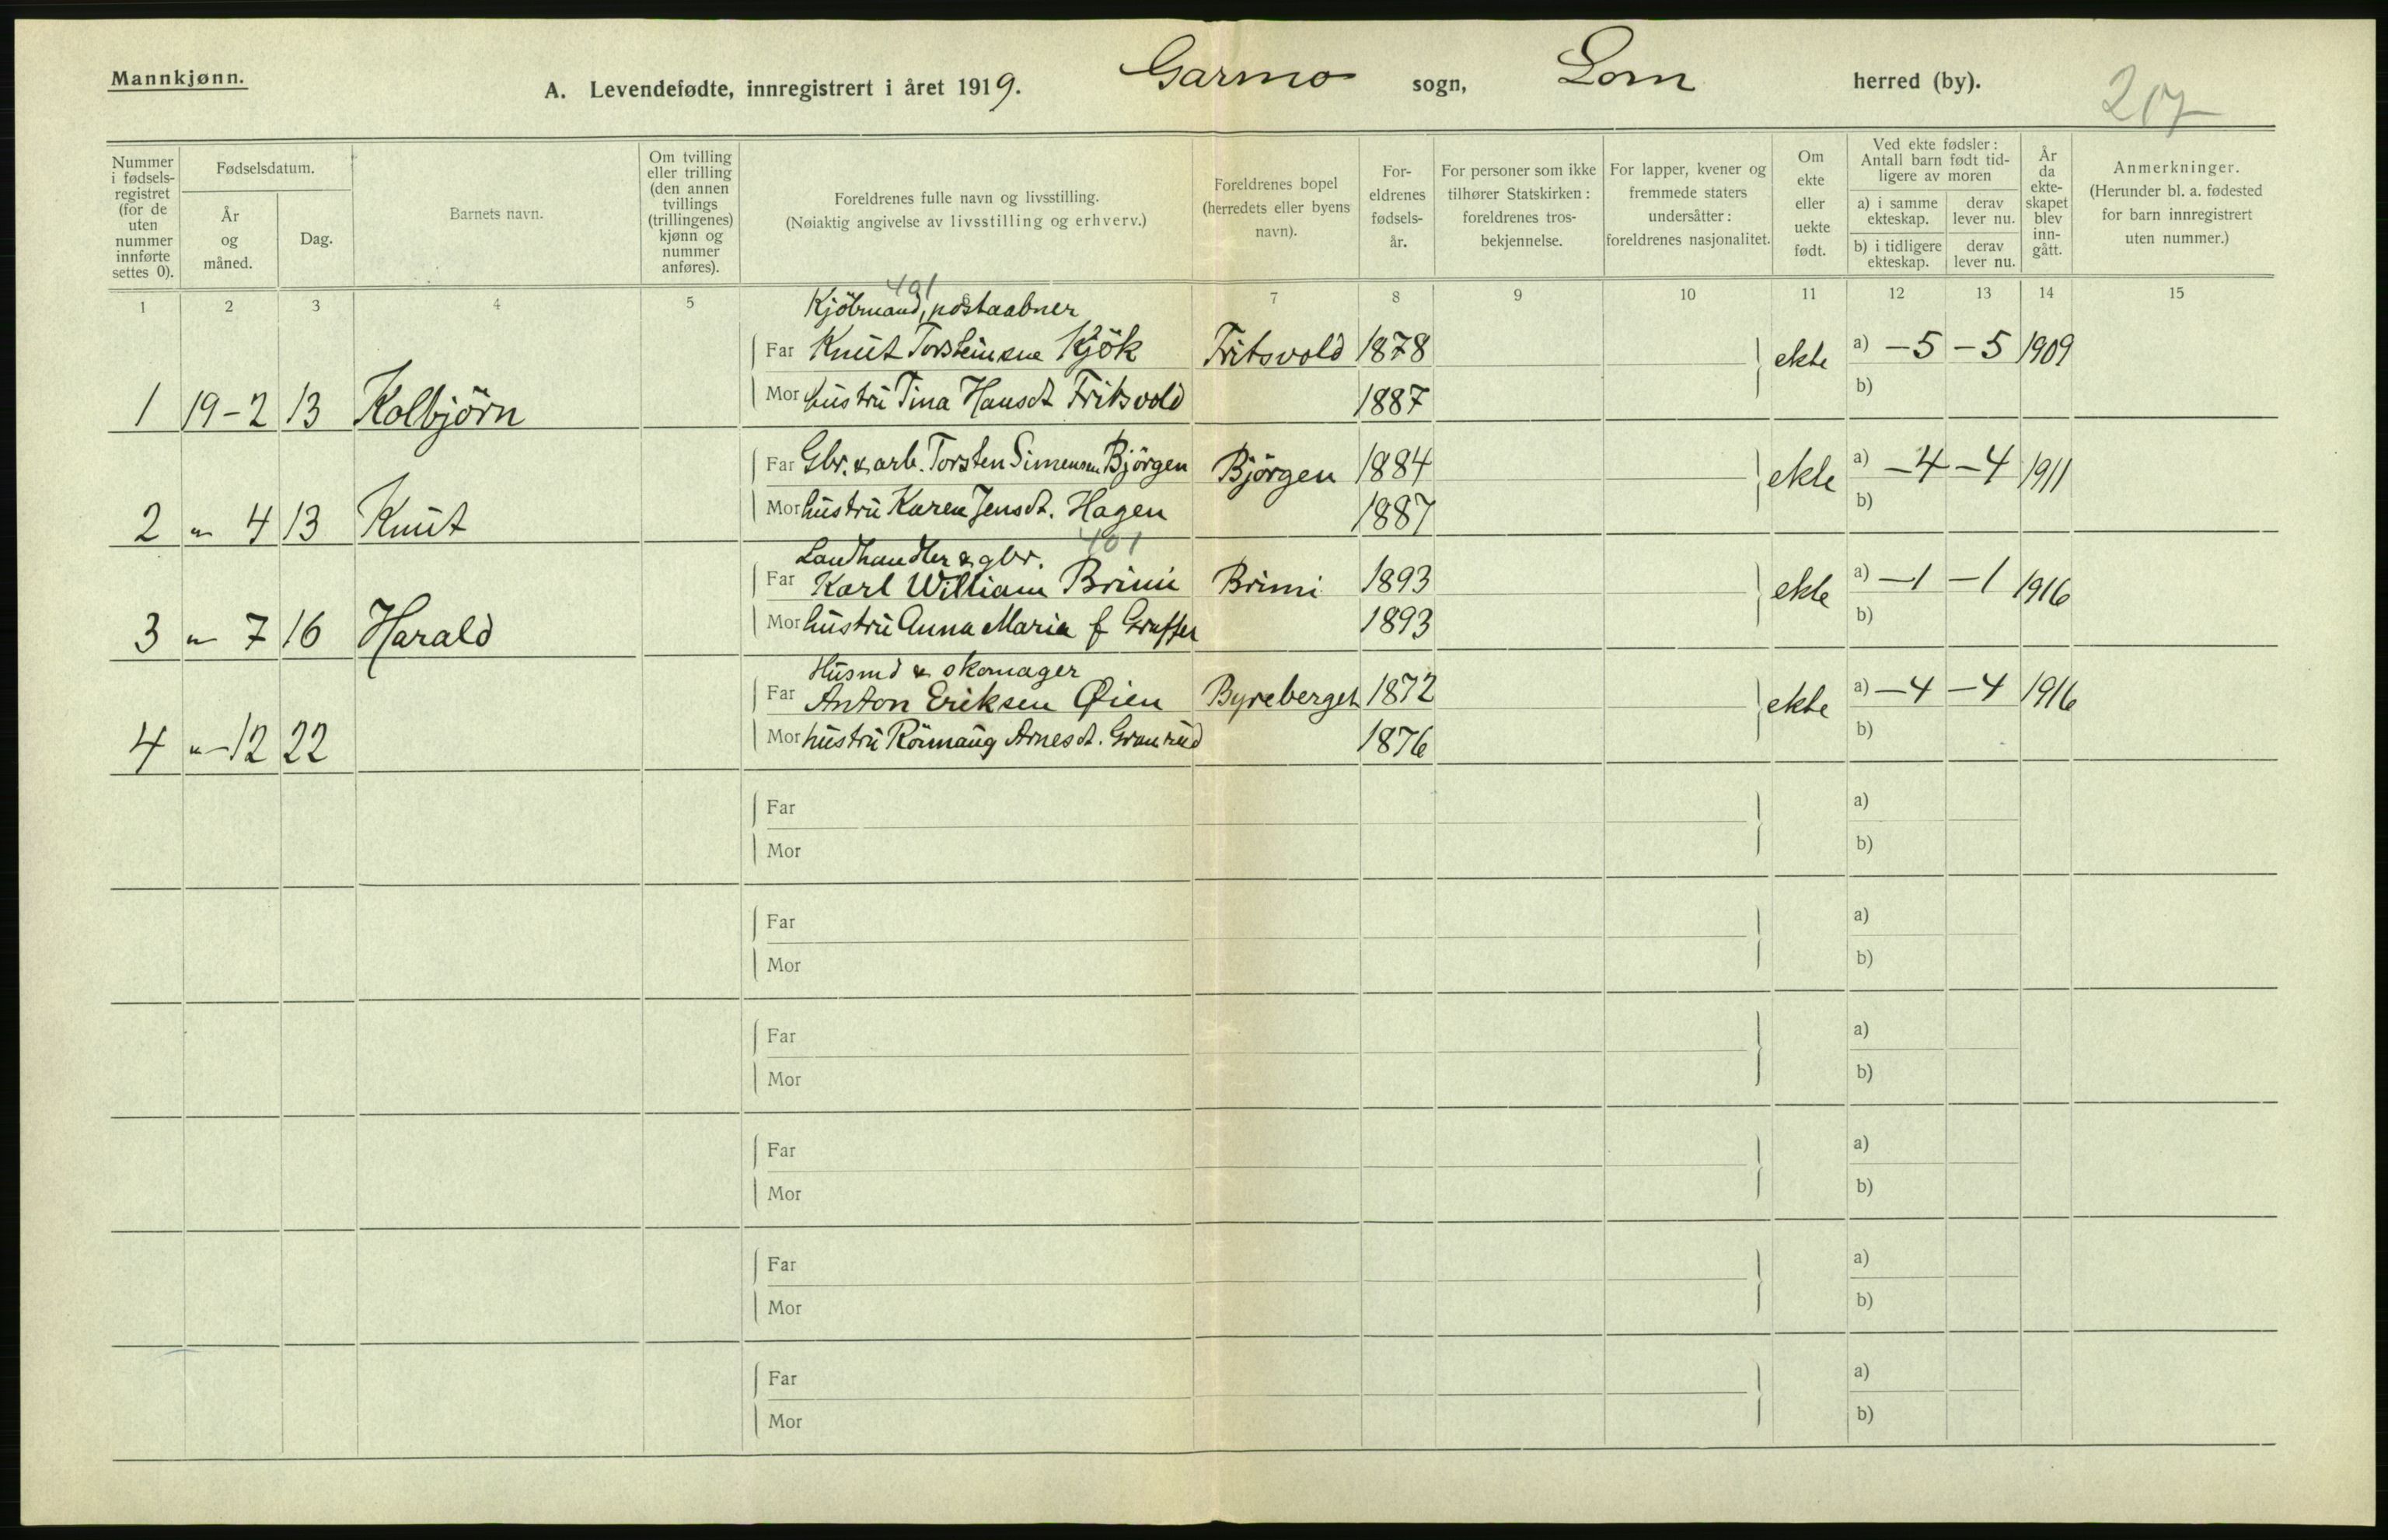 Mannkjønn.
A. Levendefødte, innregistrert i året 1919. Garmo sogn, Lom herred (by).
217
Nummer i fødsels-registret (for de uten nummer innførte settes 0).
Fødselsdatum.
År og måned.
Dag.
Barnets navn.
Om tvilling eller trilling (den annen tvillings (trillingenes) kjønn og nummer anføres).
Foreldrenes fulle navn og livsstilling.
(Nøiaktig angivelse av livsstilling og erhverv.)
Foreldrenes bopel (herredets eller byens navn).
For-eldrenes fødsels-år.
For personer som ikke tilhører Statskirken: foreldrenes tros-bekjennelse.
For lapper, kvener og fremmede staters undersåtter: foreldrenes nasjonalitet.
Om ekte eller uekte født.
Ved ekte fødsler: Antall barn født tid-ligere av moren
a) i samme ekteskap.
derav lever nu.
b) i tidligere ekteskap.
derav lever nu.
År da ekte-skapet blev inn-gått.
Anmerkninger.
(Herunder bl. a. fødested for barn innregistrert uten nummer.)
1 2 3 4 5 7 8 9 10 11 12 13 14 15
491
Kjöbmand, postaabner
Far Knut Torsteinsne Kjök Fritsvold 1878 ekte a) -5 -5 1909
1 19-2 13 Kolbjörn Mor hustru Tina Hansdt Fritsvold 1887 b)
Far Gbr. & arb. Torsten Simensen Björgen Björgen 1884 ekte a) -4 -4 1911
2 " 4 13 Knut Mor hustru Karen Jensdt. Hagen 1887 b)
401
Landhandler & gbr.
Far Karl William Brimi Brimi 1893 ekte a) -1 -1 1916
3 " 7 16 Harald Mor hustru Anna Maria f Graffer 1893 b)
Husmd & skomager
Far Anton Eriksen Øien Byreberget 1872 ekte a) -4 -4 1916
4 " -12 22 Mor hustru Rönnaug Arnesdt. Granrud 1876 b)
Far a)
Mor b)
Far a)
Mor b)
Far a)
Mor b)
Far a)
Mor b)
Far a)
Mor b)
Far a)
Mor b)